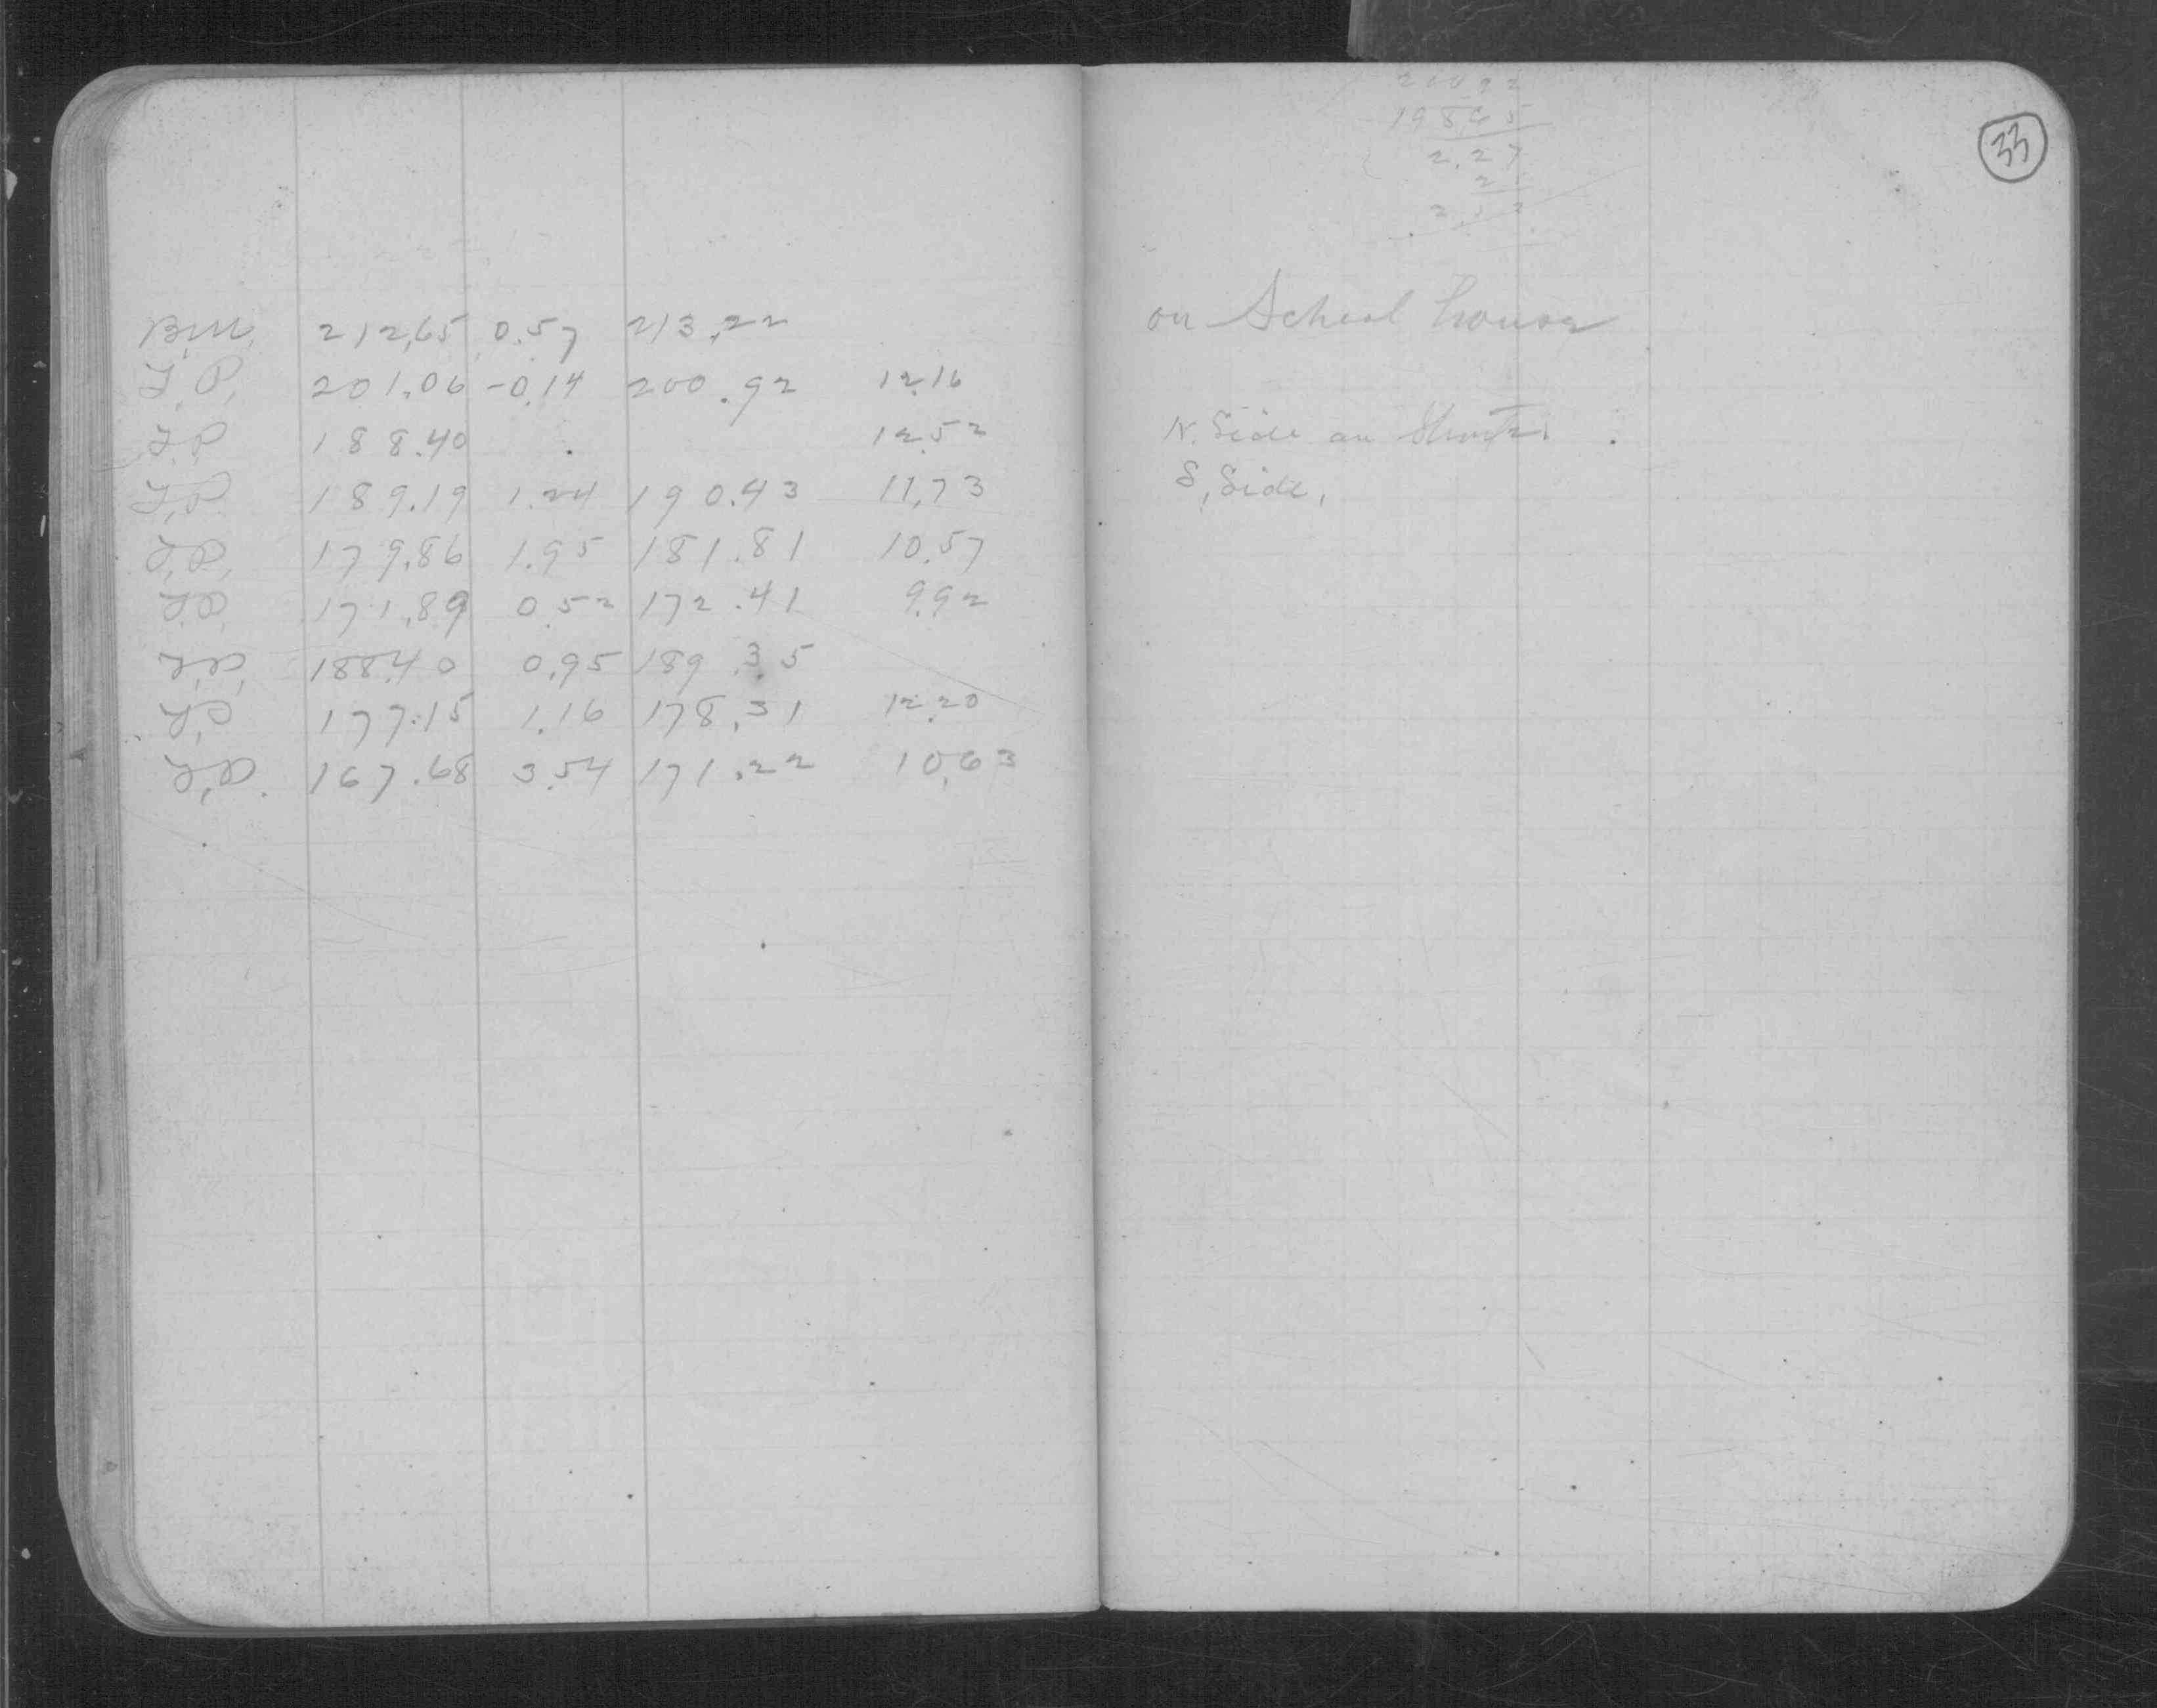 B.M. 212.65 0.57 213.22
T.P. 201.06 -0.14 200.92 12.16
T.P. 188.40 12.52
T.P. 189.19 1.24 190.43 11.73
T.P. 179.86 1.95 181.81 10.57
T.P. 171.89 0.52 172.41 9.92
T.P. 188.40 0.95 189.35
T.P. 177.15 1.16 178.31 12.20
T.P. 167.68 3.54 171.22 10.63
33
200 92
198 65
2.27
on School house
N. Side on
S. Side.